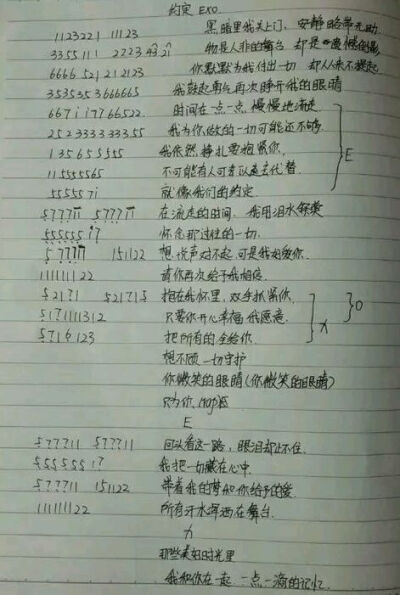 约定 EXO.
1123221 11123 黑暗里我关上门, 安静能带无助
3355111 2223 43 2i 物是人非的舞台 却是
6666 521 212123 你默默为我付出一切 却从未不提起
3535353666665 我鼓起勇气再次睁开我的眼睛
667ii7766522. 时间在一点一点 慢慢地流走
252333333355 我为你做的一切可能还不够.
135655555 我依然挣扎要抱紧你.
115555565 不可能有人可来以过去代替. E
555557i 就像我们的约定
5???11 5???11 在流走的时间. 我用泪水
555555 i? 怀念那过往的一切.
5???11 151122 想说声对不起, 可是我
111111122 请你再次给于我相信
521?1 521?15 抱在我怀里. 双手抓紧你.
51?1111312 只要你开心幸福 我愿意. } O
5716123 把所有的全给你. } X
想不顾一切守护
你微笑的眼睛(你微笑的眼睛)
只为你,
E
5???11 5???11 回头看这一路, 眼泪却止不住.
555555 i? 我把一切藏在心中.
5???11 151122 带着我的梦和你给予的爱
111111122 所有汗水挥洒在舞台.
X
那些美好时光里
我和你在一起 一点一滴的记忆.